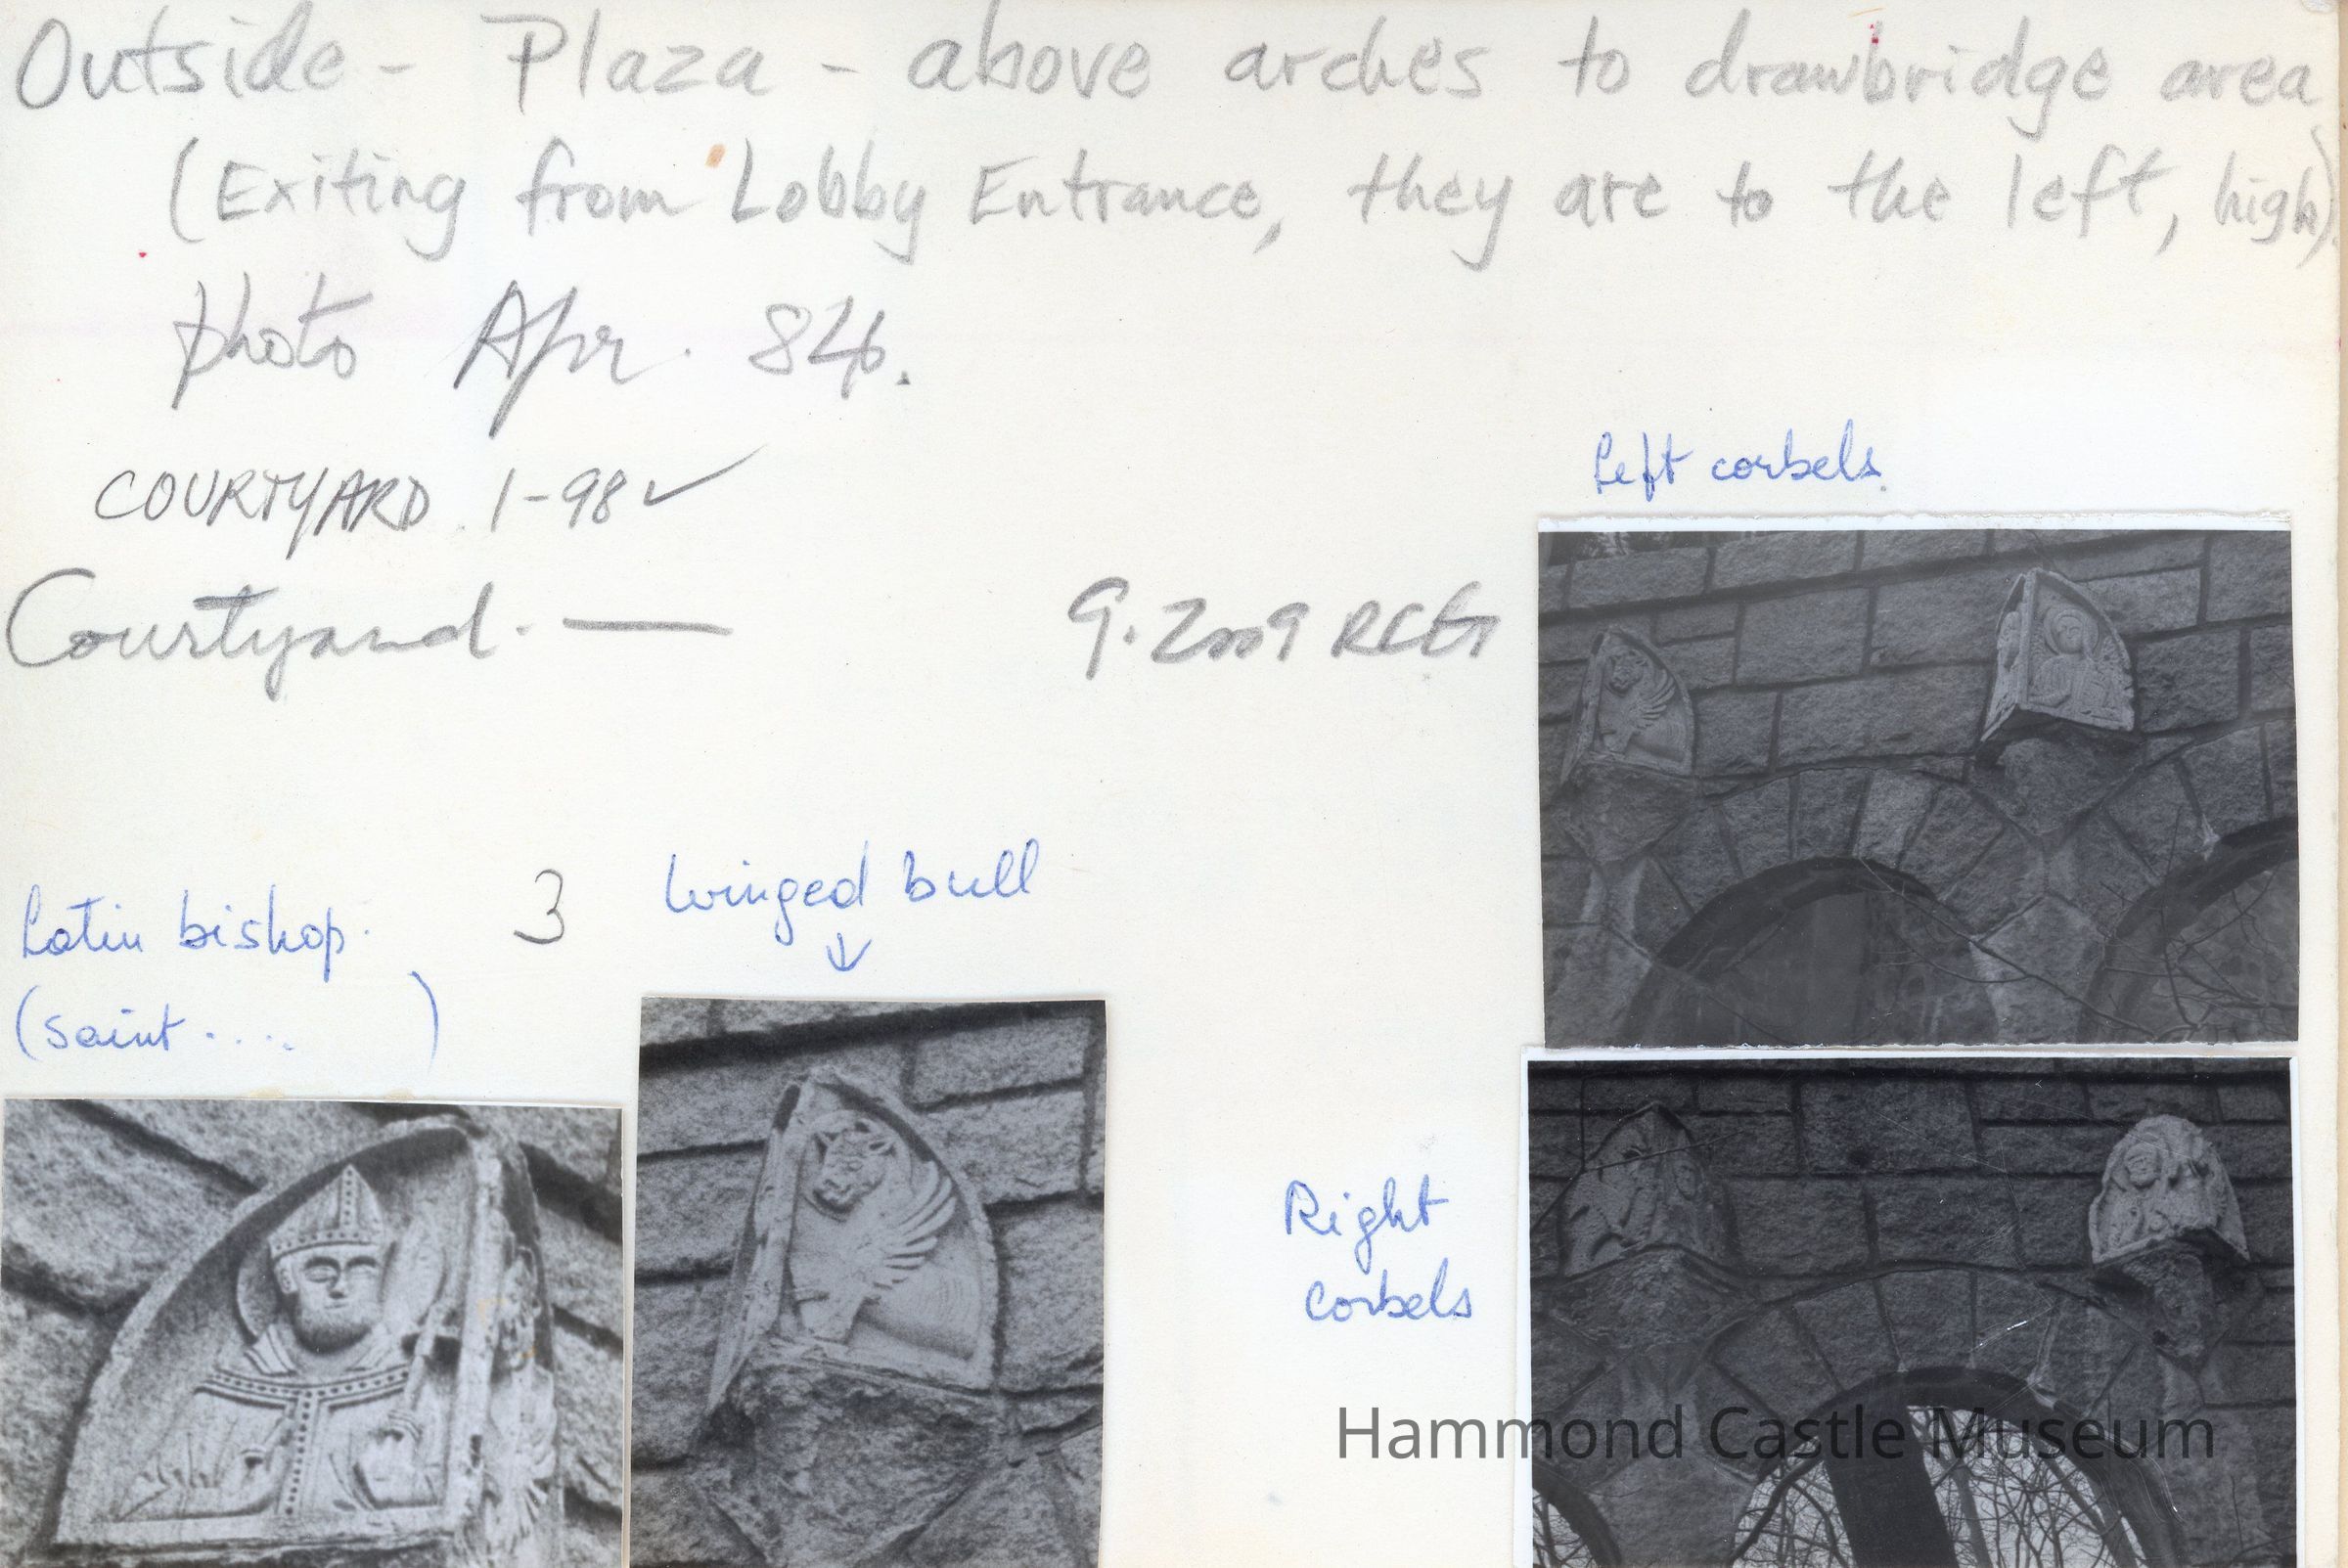 Outside - Plaza - above arches to drawbridge area
(Exiting from Lobby Entrance, they are to the left, high)
photo Apr. 84.
COURTYARD. 1-98 ✓
Left corbels.
Courtyard. — 9.2009 RCG
Latin bishop.
(saint ....    )
3
winged bull
↓
Right
corbels
Hammond Castle Museum